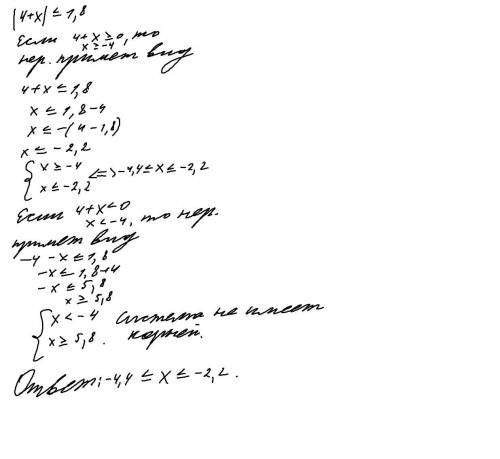 |4+x| ≤ 1,8
Если 4+x ≥ 0, то
x ≥ -4
нер. примет вид
4+x ≤ 1,8
x ≤ 1,8-4
x ≤ -(4-1,8)
x ≤ -2,2
{ x ≥ -4
x ≤ -2,2 <=> -4,4 ≤ x ≤ -2,2
Если 4+x < 0
x < -4, то нер.
примет вид
-4 -x ≤ 1,8
-x ≤ 1,8+4
-x ≤ 5,8
x ≥ 5,8
{ x < -4 система не имеет
x ≥ 5,8. корней.
Ответ: -4,4 ≤ x ≤ -2,2.